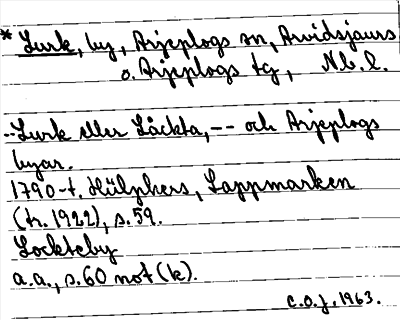 * Lurk, by, Arjeplogs sn, Arvidsjaurs
o. Arjeplogs tg, Nb. l.
--Lurk eller Låckta, -- och Arjeplogs
byar.
1790-t. Hülphers, Lappmarken
(tr. 1922), s. 59.
Lockteby
a.a., s. 60 not (k).
C.O.J. 1963.